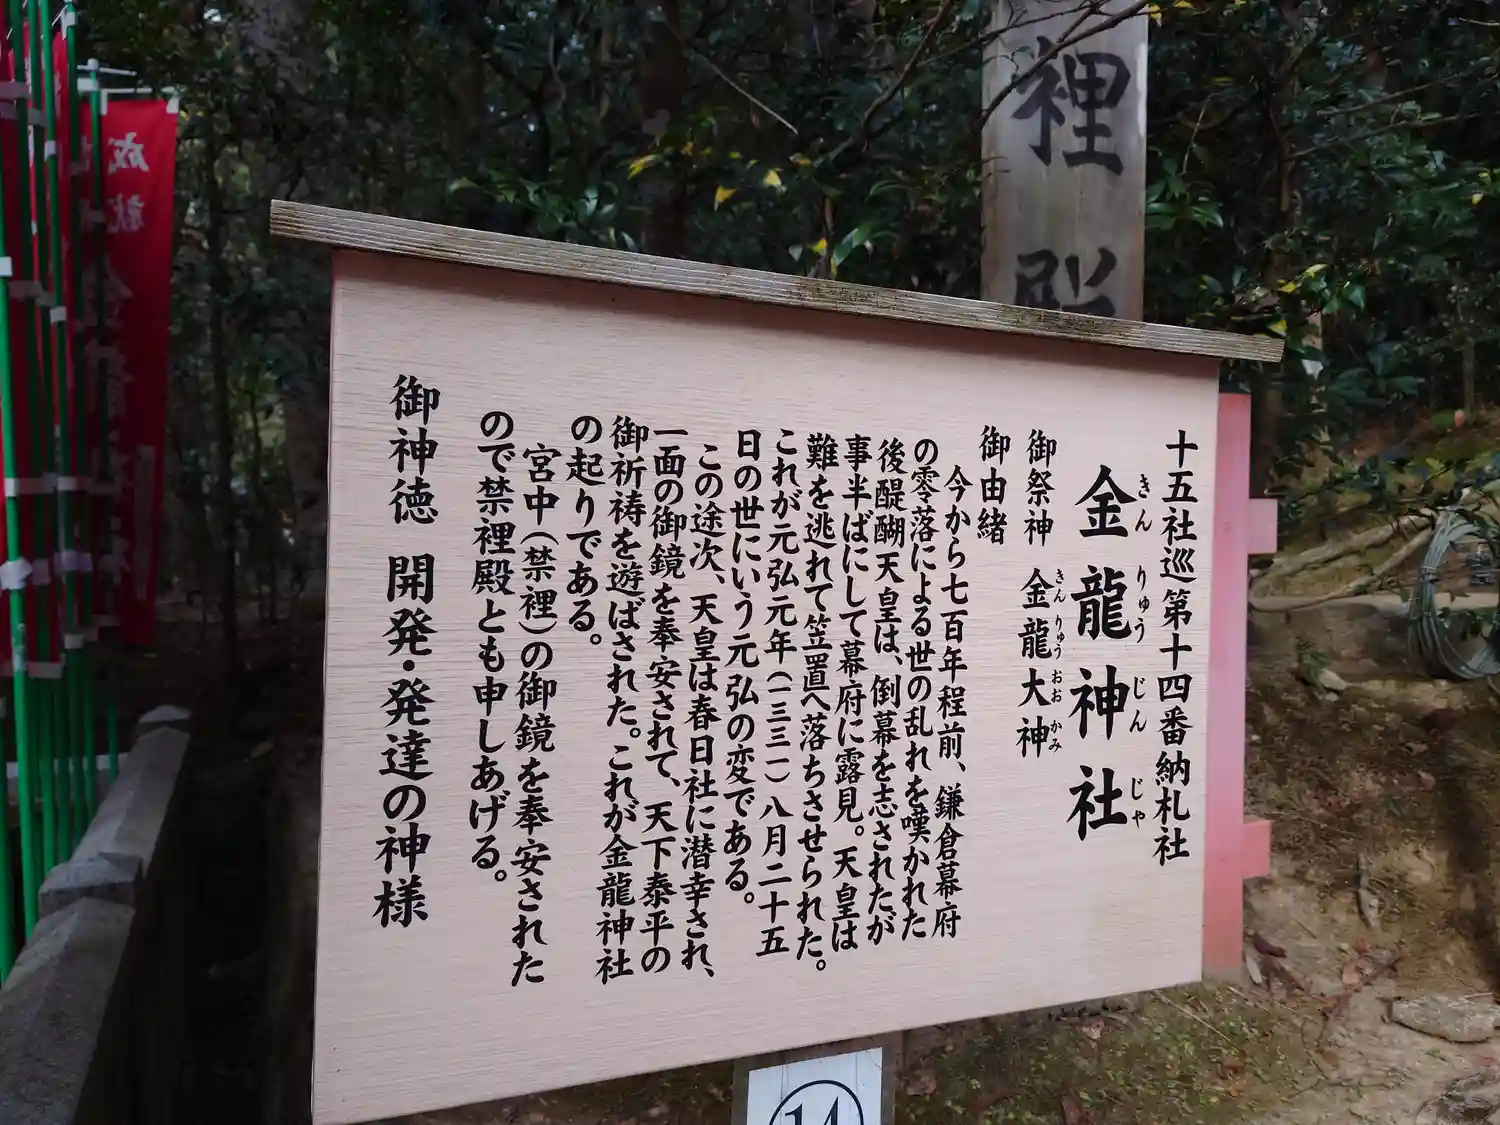 十五社巡第十四番納札社
金龍神社
きん りゅう じん じゃ
御祭神 金龍大神
きん りゅう おお かみ
御由緒
今から七百年程前、鎌倉幕府
の零落による世の乱れを嘆かれた
後醍醐天皇は、倒幕を志されたが
事半ばにして幕府に露見。天皇は
難を逃れて笠置へ落ちさせられた。
これが元弘元年(一三三一)八月二十五
日の世にいう元弘の変である。
この途次、天皇は春日社に潜幸され、
一面の御鏡を奉安されて、天下泰平の
御祈祷を遊ばされた。これが金龍神社
の起りである。
宮中(禁裡)の御鏡を奉安された
ので禁裡殿とも申しあげる。
御神徳 開発・発達の神様
裡殿
14
成就